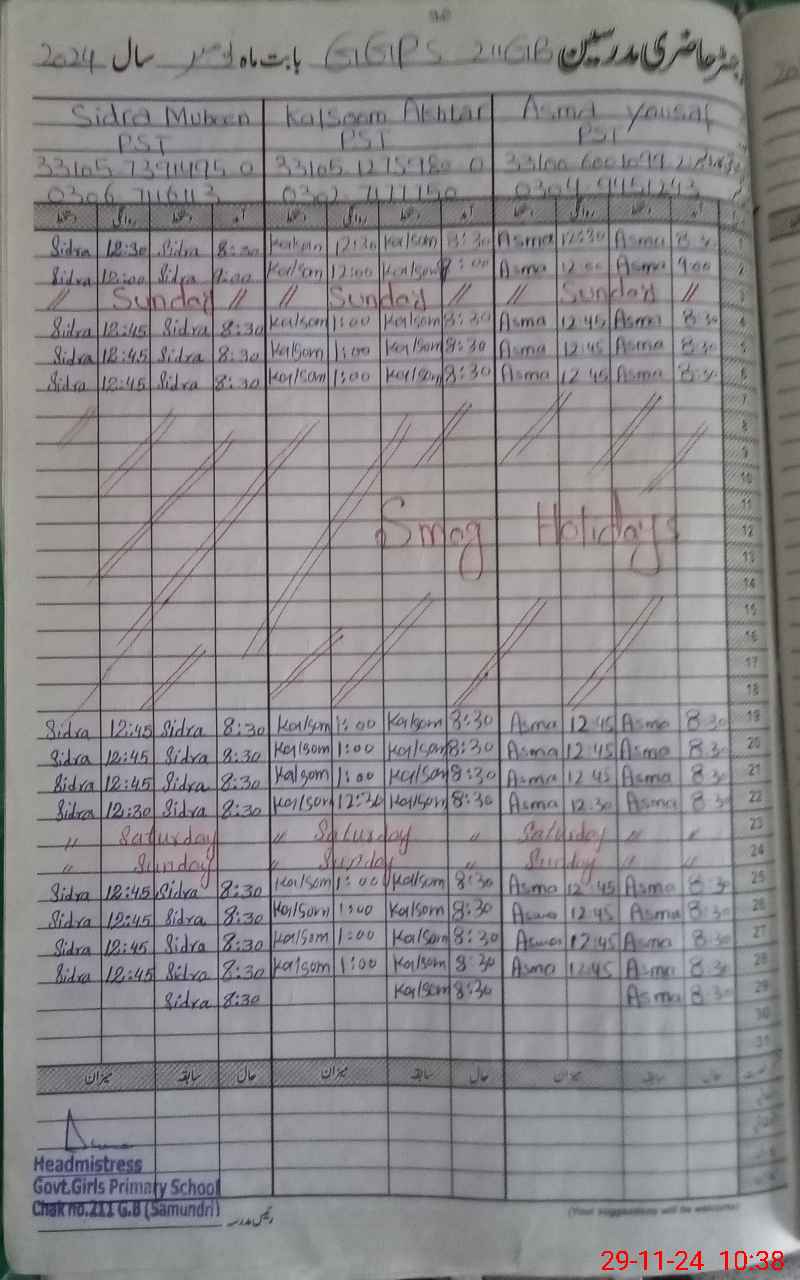 رجسٹر حاضری مدرسین GGPS 211GB بابت ماہ نومبر سال 2024
Sidra Mubeen Kalsoom Akhtar Asma Yousaf
PST PST PST
33105 7391495 0 33105 1275980 0 33100 6001099
0306 7116113 0302 0304 9451243
دستخط روانگی دستخط آمد دستخط روانگی دستخط آمد دستخط روانگی دستخط آمد
Sidra 12:30 Sidra 8:30 Kalsom 12:30 Kalsom 8:30 Asma 12:30 Asma 8:30 1
Sidra 12:00 Sidra 9:00 Kalsom 12:00 Kalsom :00 Asma 12:00 Asma 9:00 2
// Sunday // // Sunday // // Sunday // 3
Sidra 12:45 Sidra 8:30 Kalsom 1:00 Kalsom 8:30 Asma 12 45 Asma 8 30 4
Sidra 12:45 Sidra 8:30 Kalsom 1:00 Kalsom 8:30 Asma 12 45 Asma 8:30 5
Sidra 12:45 Sidra 8:30 Kalsom 1:00 Kalsom 8:30 Asma 12 45 Asma 8:30 6
7
8
9
10
11
Smog Holidays 12
13
14
15
16
17
18
Sidra 12:45 Sidra 8:30 Kalsom 1:00 Kalsom 8:30 Asma 12 45 Asma 8 30 19
Sidra 12:45 Sidra 8:30 Kalsom 1:00 Kalsom 8:30 Asma 12 45 Asma 8 30 20
Sidra 12:45 Sidra 8:30 Kalsom 1:00 Kalsom 8:30 Asma 12 45 Asma 8 30 21
Sidra 12:30 Sidra 8:30 Kalsom 12:30 Kalsom 8:30 Asma 12 30 Asma 8 30 22
// Saturday // Saturday // Saturday // // 23
// Sunday // Sunday // Sunday // // 24
Sidra 12:45 Sidra 8:30 Kalsom 1:00 Kalsom 8:30 Asma 12:45 Asma 8:30 25
Sidra 12:45 Sidra 8:30 Kalsom 1:00 Kalsom 8:30 Asma 12 45 Asma 8:30 26
Sidra 12:45 Sidra 8:30 Kalsom 1:00 Kalsom 8:30 Asma 12:45 Asma 8:30 27
Sidra 12:45 Sidra 8:30 Kalsom 1:00 Kalsom 8:30 Asma 12:45 Asma 8:30 28
Sidra 8:30 Kalsom 8:30 Asma 8:30 29
30
31
میزان سابقہ حال میزان سابقہ حال میزان سابقہ حال
Headmistress
Govt.Girls Primary School
Chak no.211 G.B (Samundri)
رئیس مدرسہ
(Your suggestions will be welcome)
29-11-24 10:38